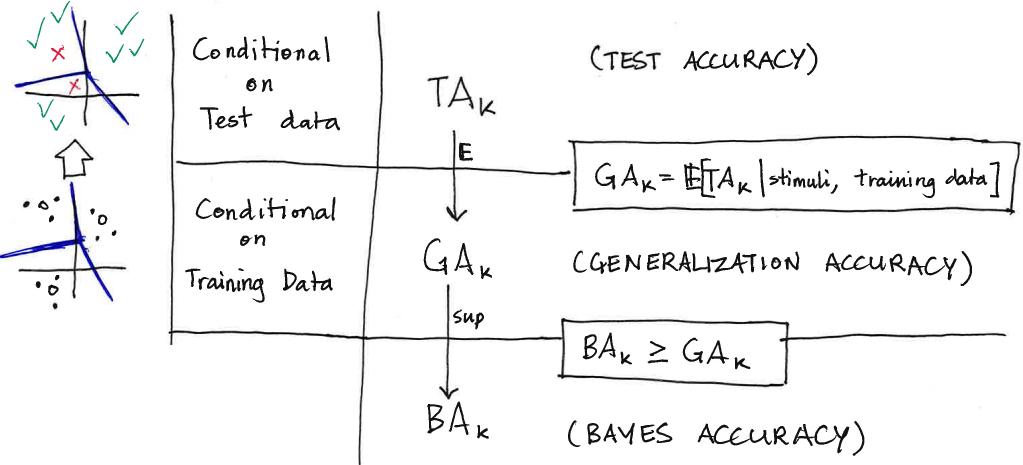 Conditional
on
Test data
TA_k
(TEST ACCURACY)
E
GA_k = E[TA_k | stimuli, training data]
Conditional
on
Training Data
GA_k
(GENERALIZATION ACCURACY)
sup
BA_k ≥ GA_k
BA_k
(BAYES ACCURACY)